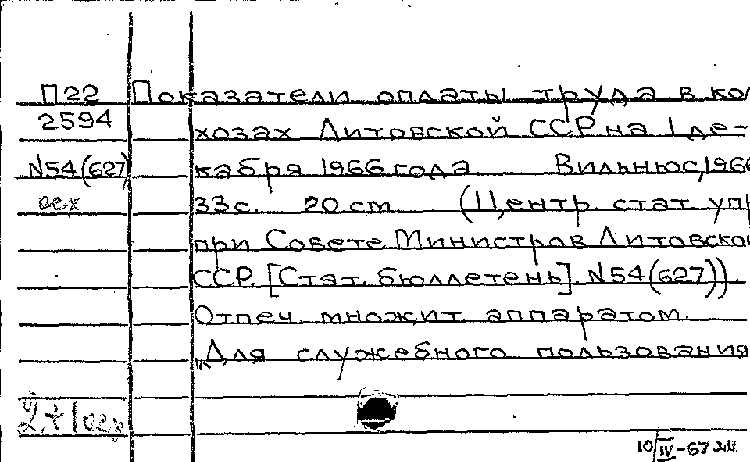 П22 Показатели оплаты труда в ко
2594 хозах Литовской ССР на 1 де-
N54(627) кабря 1966 года Вильнюс, 1966
33с. 20 cm (Центр. стат. упр
при Совете Министров Литовско
ССР. [Стат. бюллетень]. N54(627))
Отпеч. множит. аппаратом.
„Для служебного пользования
10/IV-67